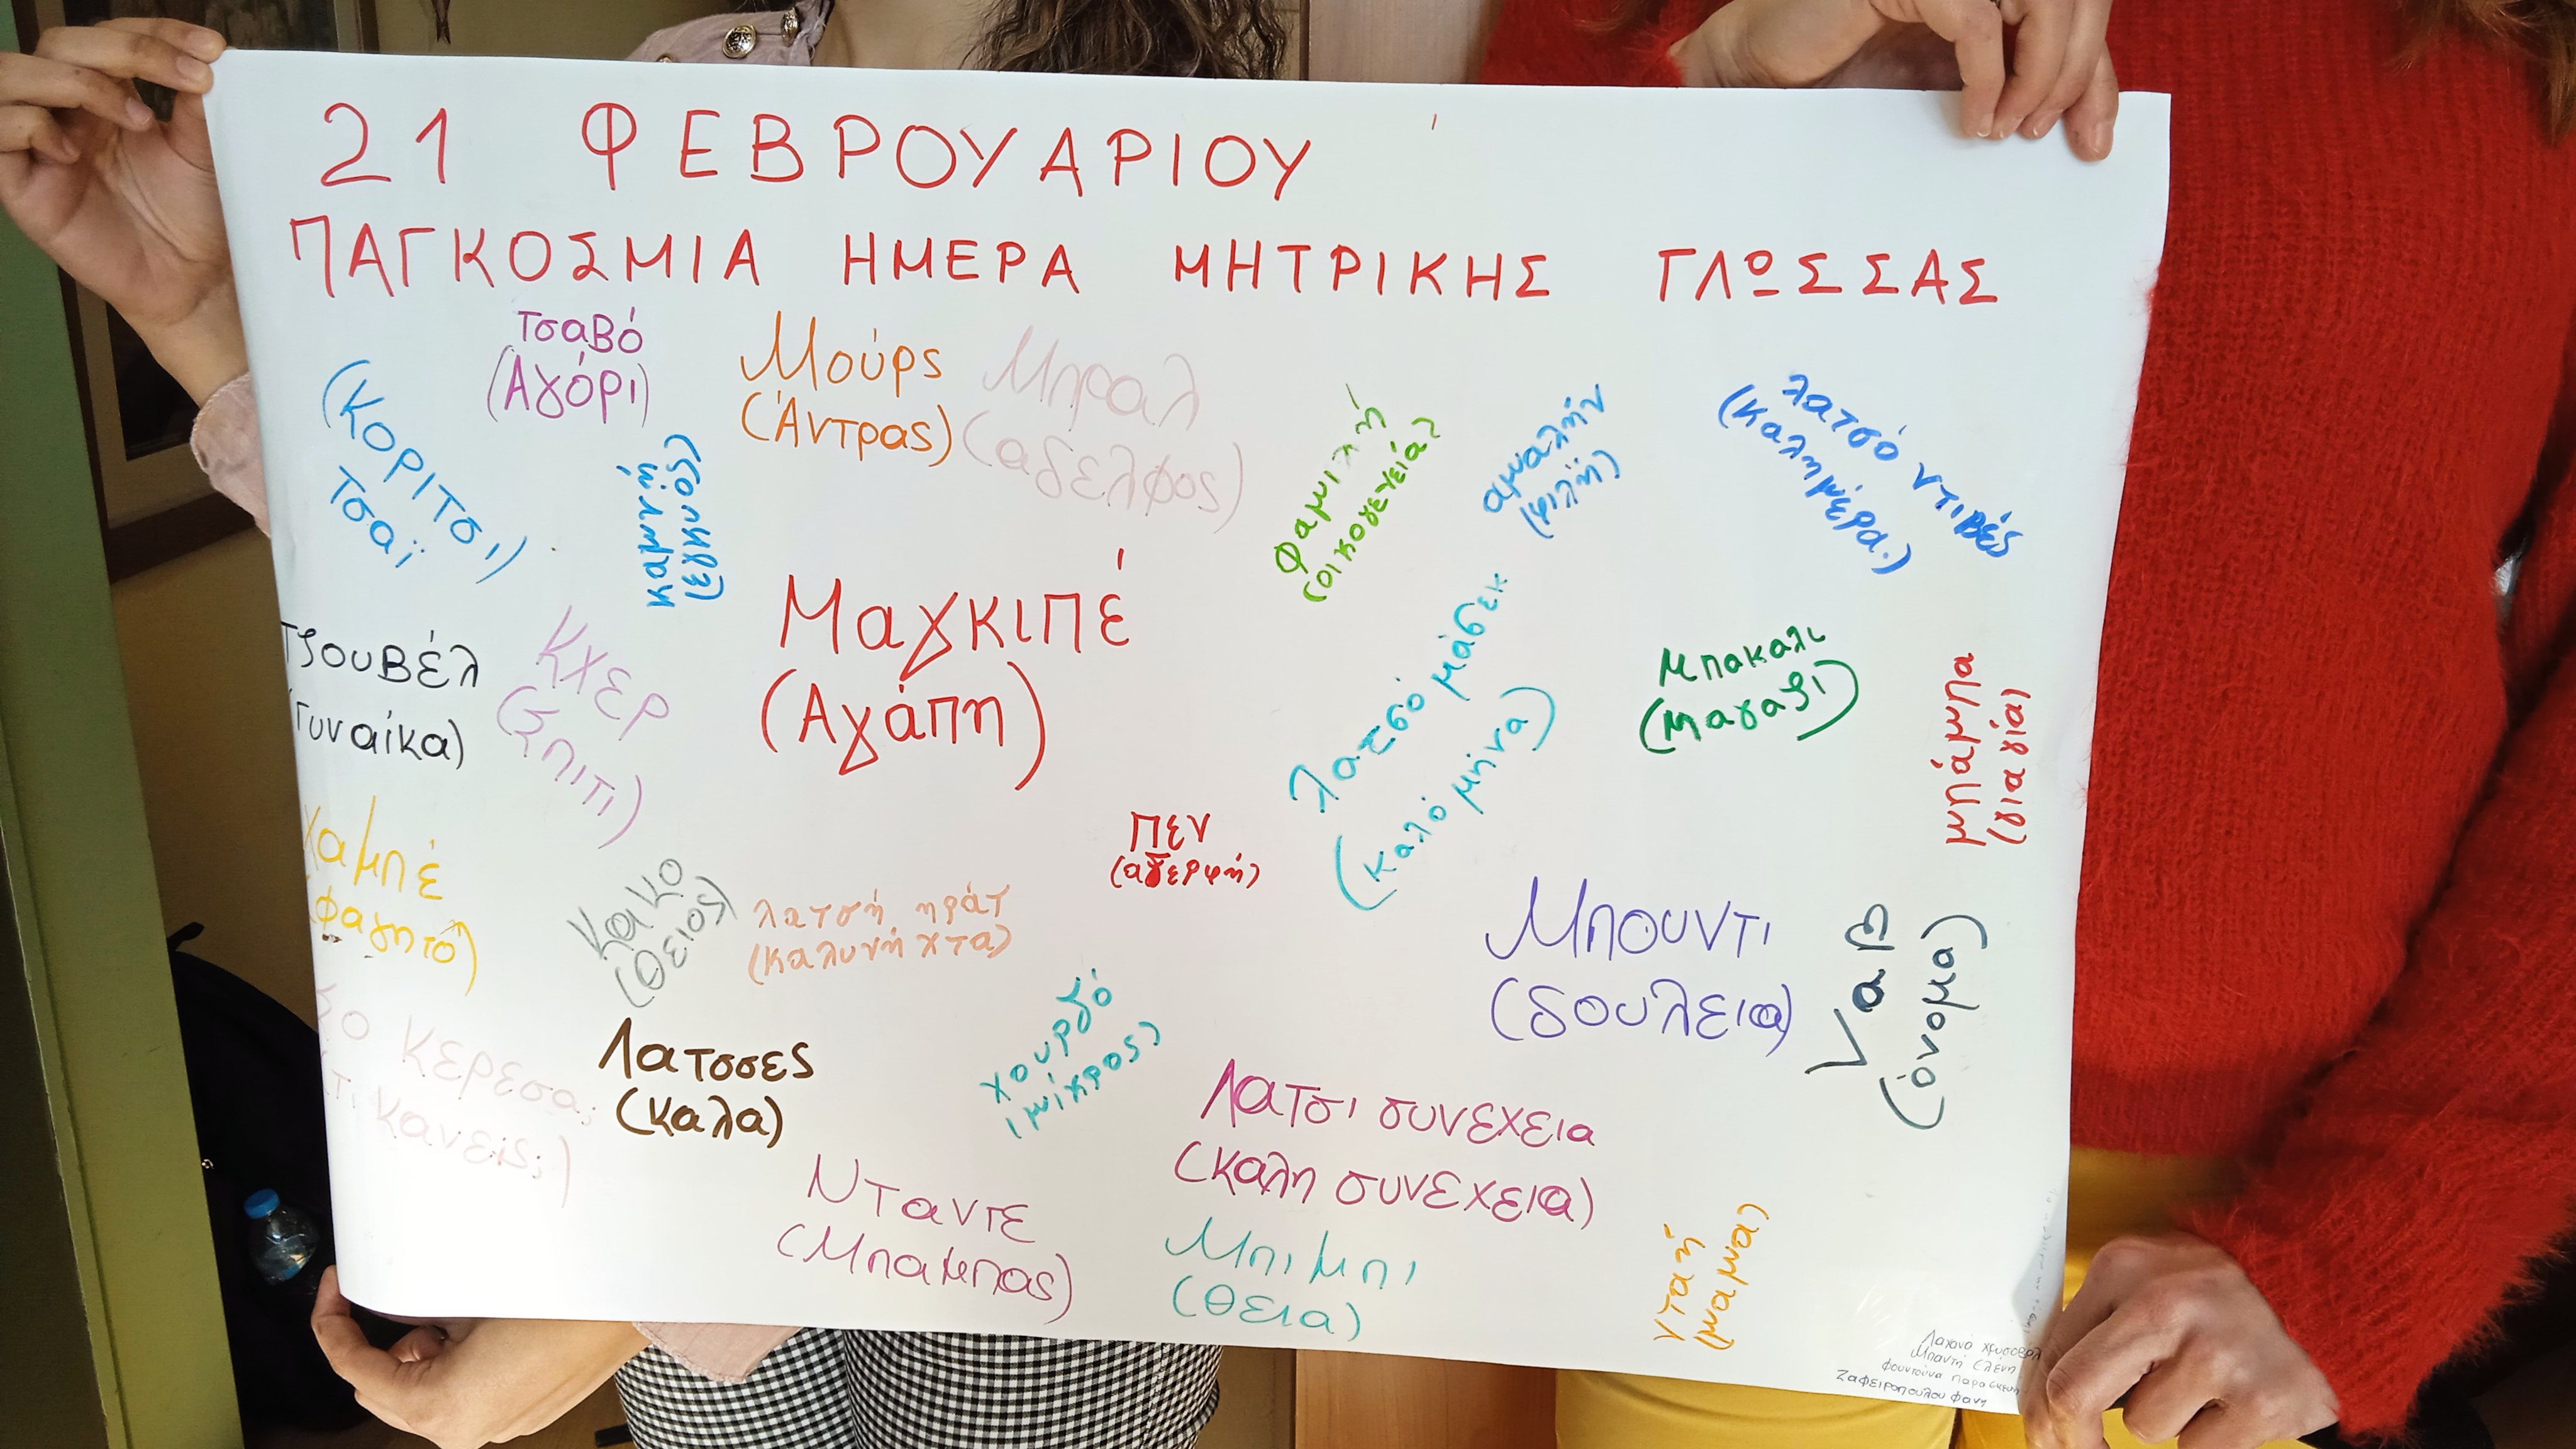 21 ΦΕΒΡΟΥΑΡΙΟΥ
ΠΑΓΚΟΣΜΙΑ ΗΜΕΡΑ ΜΗΤΡΙΚΗΣ ΓΛΩΣΣΑΣ
τσαβό
(Αγόρι)
Μούρς
(Άντρας)
Μπραλ
(αδελφος)
(ΚΟΡΙΤσι)
Τσαϊ
καμνή
φαμιλή
(οικογενειά)
αμαλήν
(φιλή)
λατσό ντιβές
(καλημέρα.)
Μαγκιπέ
(Αγάπη)
Τζουβέλ
(Γυναίκα)
Κχερ
(Σπιτι)
λατσό μάσεκ
(καλό μήνα)
μπακαλι
(μαγαζι)
μπάμπα
(για γιά)
Χαμπέ
(φαγητό)
κακο
(θειος)
λατσή ηράτ
(καλυνή χτα)
Πεν
(αδερφή)
Μπουντι
(δουλεια)
Vaβ
(όνομα)
Σο κερεσα;
(τι κανεις;)
Λατσσες
(καλα)
χουρδό
(μίκρος)
Λατσι συνεχεια
(καλη συνεχεια)
Νταντε
(Μπαμπας)
Μπιμπι
(Θεια)
νταή
(μαμα)
Μπαντή Ελενη
Φουντούνα Παρασκευη
Ζαφειροπουλου Φανη